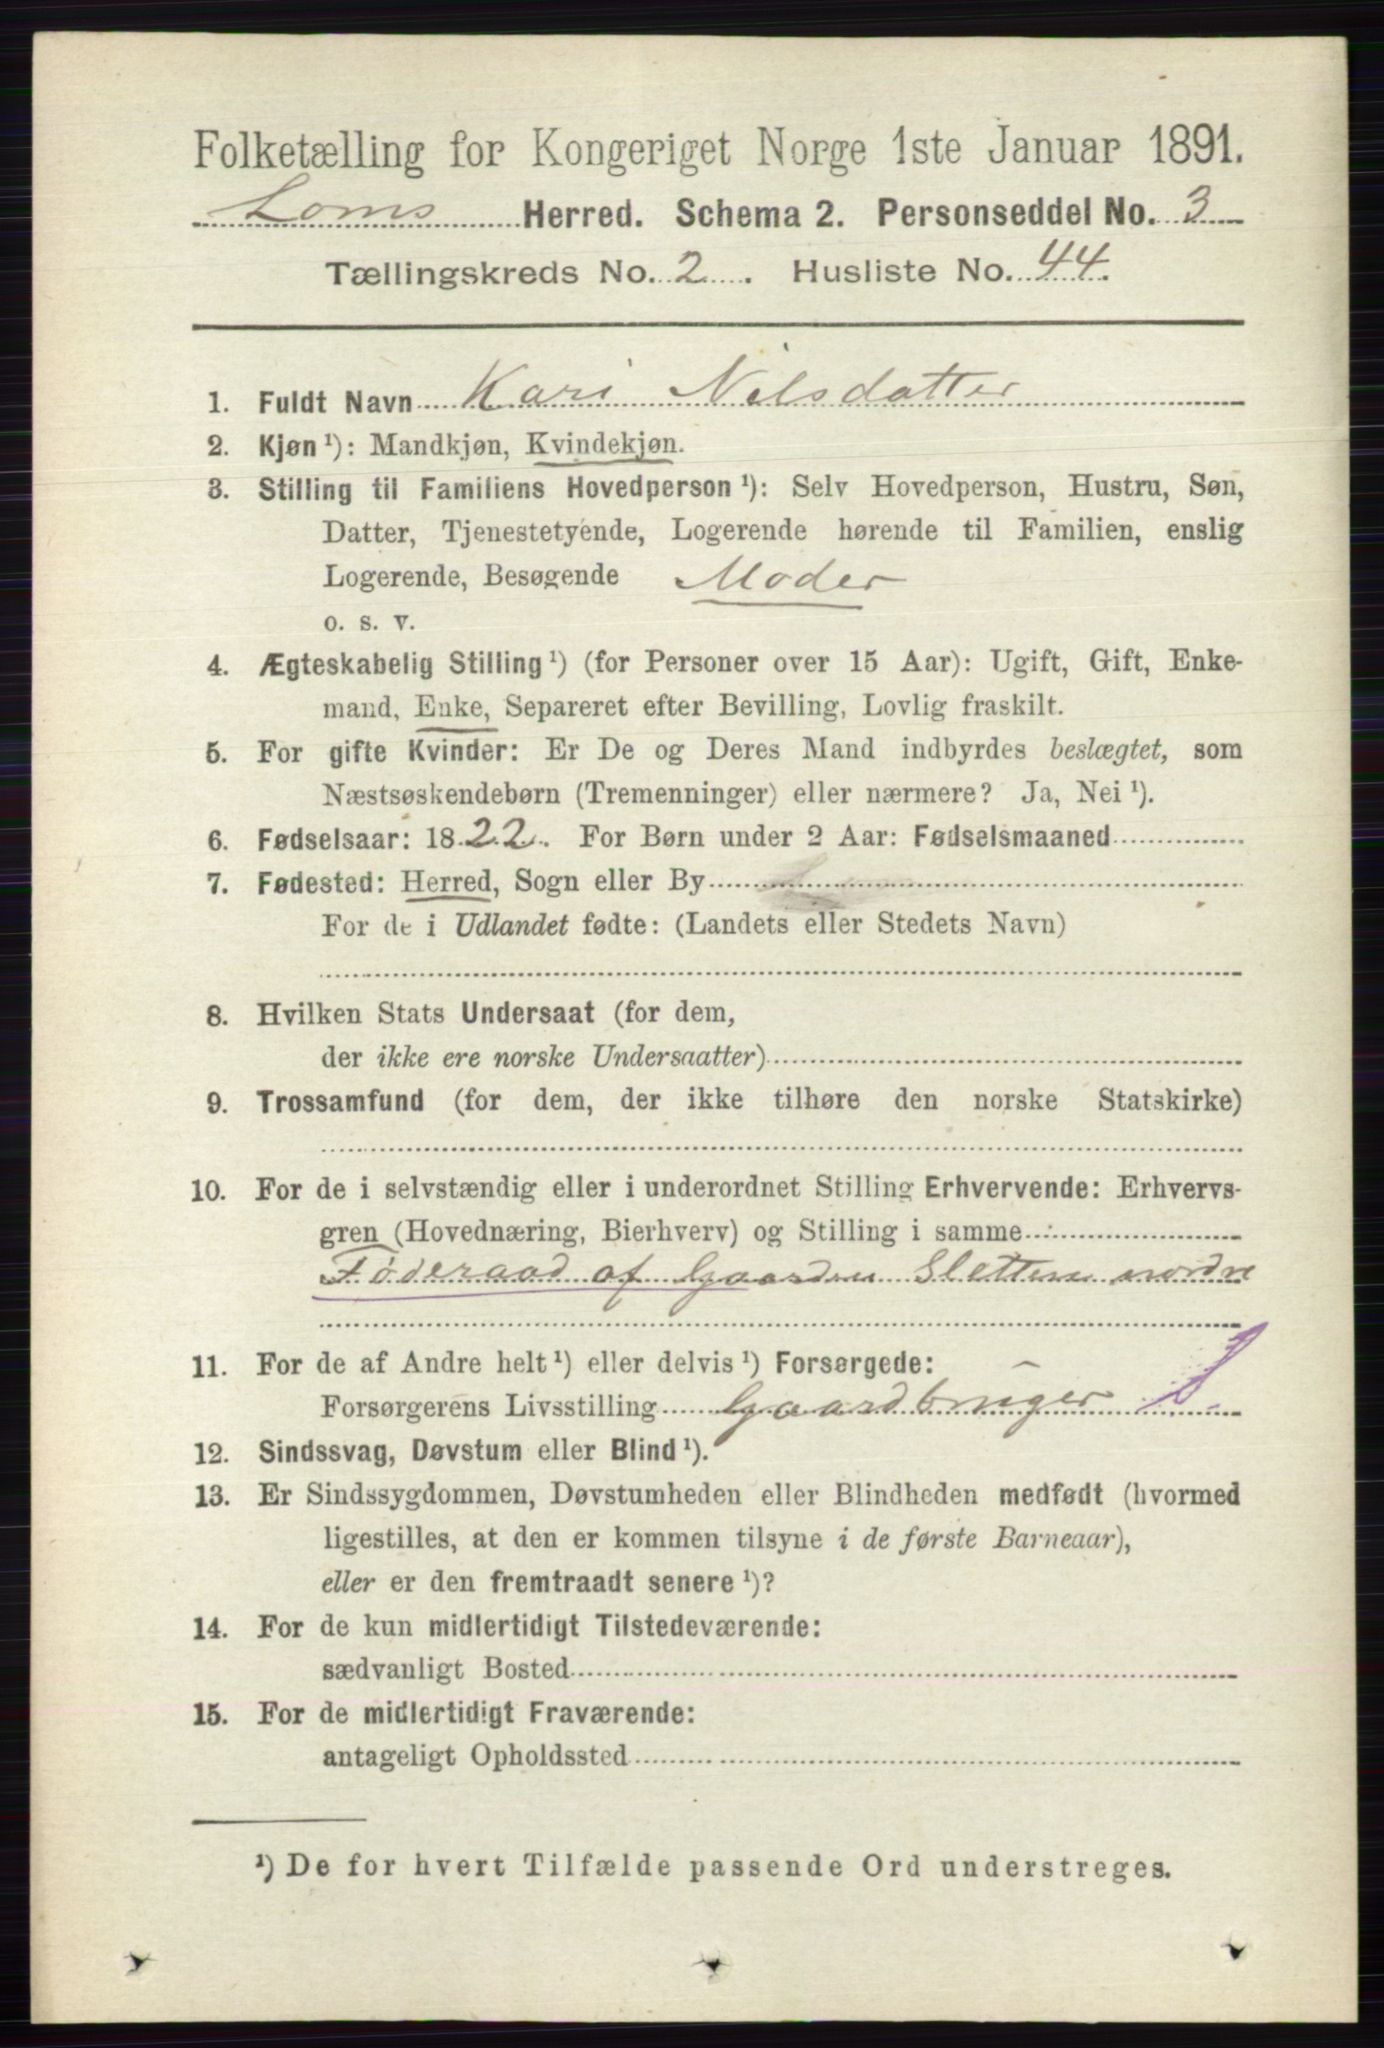 Folketælling for Kongeriget Norge 1ste Januar 1891.
Loms Herred. Schema 2. Personseddel No. 3
Tællingskreds No. 2. Husliste No. 44.
1. Fuldt Navn Kari Nilsdatter
2. Kjøn ¹): Mandkjøn, Kvindekjøn.
3. Stilling til Familiens Hovedperson ¹): Selv Hovedperson, Hustru, Søn,
Datter, Tjenestetyende, Logerende hørende til Familien, enslig
Logerende, Besøgende Moder
o. s. v.
4. Ægteskabelig Stilling ¹) (for Personer over 15 Aar): Ugift, Gift, Enke-
mand, Enke, Separeret efter Bevilling, Lovlig fraskilt.
5. For gifte Kvinder: Er De og Deres Mand indbyrdes beslægtet, som
Næstsøskendebørn (Tremenninger) eller nærmere? Ja, Nei ¹).
6. Fødselsaar: 1822. For Børn under 2 Aar: Fødselsmaaned
7. Fødested: Herred, Sogn eller By
For de i Udlandet fødte: (Landets eller Stedets Navn)
8. Hvilken Stats Undersaat (for dem,
der ikke ere norske Undersaatter)
9. Trossamfund (for dem, der ikke tilhøre den norske Statskirke)
10. For de i selvstændig eller i underordnet Stilling Erhvervende: Erhvervs-
gren (Hovednæring, Bierhverv) og Stilling i samme
Føderaad af Gaarden Sletten nordre
11. For de af Andre helt ¹) eller delvis ¹) Forsørgede:
Forsørgerens Livsstilling Gaardbruger
12. Sindssvag, Døvstum eller Blind ¹).
13. Er Sindssygdommen, Døvstumheden eller Blindheden medfødt (hvormed
ligestilles, at den er kommen tilsyne i de første Barneaar),
eller er den fremtraadt senere ¹)?
14. For de kun midlertidigt Tilstedeværende:
sædvanligt Bosted
15. For de midlertidigt Fraværende:
antageligt Opholdssted
¹) De for hvert Tilfælde passende Ord understreges.